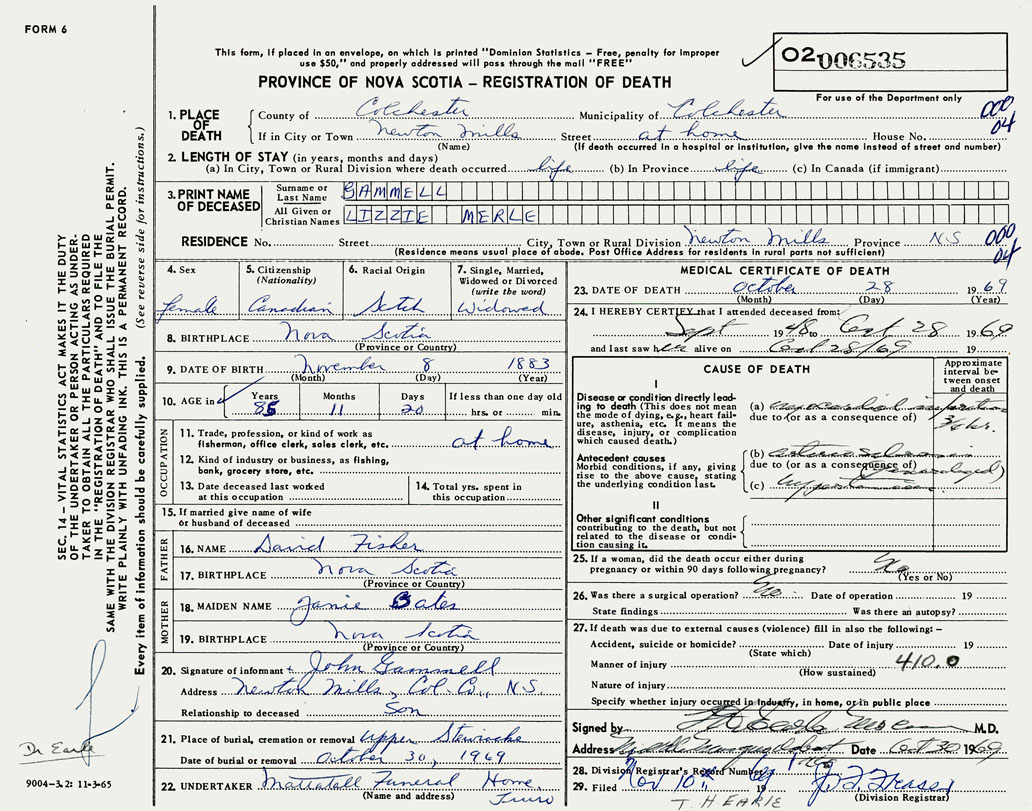 FORM 6
This form, if placed in an envelope, on which is printed "Dominion Statistics – Free, penalty for improper
use $50," and properly addressed will pass through the mail "FREE"
PROVINCE OF NOVA SCOTIA – REGISTRATION OF DEATH
02 006535
For use of the Department only
1. PLACE OF DEATH
County of Colchester Municipality of Colchester
000 04
If in City or Town Newton Mills Street at home House No.
(Name) (If death occurred in a hospital or institution, give the name instead of street and number)
2. LENGTH OF STAY (in years, months and days)
(a) In City, Town or Rural Division where death occurred life (b) In Province life (c) In Canada (if immigrant)
3. PRINT NAME OF DECEASED
Surname or Last Name GAMMELL
All Given or Christian Names LIZZIE MERLE
RESIDENCE No. Street City, Town or Rural Division Newton Mills Province N S 000 04
(Residence means usual place of abode. Post Office Address for residents in rural parts not sufficient)
4. Sex
female
5. Citizenship (Nationality)
Canadian
6. Racial Origin
Scotch
7. Single, Married, Widowed or Divorced (write the word)
Widowed
8. BIRTHPLACE Nova Scotia
(Province or Country)
9. DATE OF BIRTH November 8 1883
(Month) (Day) (Year)
10. AGE in
Years Months Days If less than one day old
85 11 20 hrs. or min.
OCCUPATION
11. Trade, profession, or kind of work as
fisherman, office clerk, sales clerk, etc. at home
12. Kind of industry or business, as fishing,
bank, grocery store, etc.
13. Date deceased last worked at this occupation
14. Total yrs. spent in this occupation
15. If married give name of wife
or husband of deceased
FATHER
16. NAME David Fisher
17. BIRTHPLACE Nova Scotia
(Province or Country)
MOTHER
18. MAIDEN NAME Janie Bates
19. BIRTHPLACE Nova Scotia
(Province or Country)
20. Signature of informant John Gammell
Address Newton Mills, Col. Co., N.S.
Relationship to deceased Son
21. Place of burial, cremation or removal Upper Stewiacke
Date of burial or removal October 30, 1969
22. UNDERTAKER Mattatall Funeral Home,
(Name and address) Truro
MEDICAL CERTIFICATE OF DEATH
23. DATE OF DEATH October 28 1969
(Month) (Day) (Year)
24. I HEREBY CERTIFY that I attended deceased from:
Sept 1948 to Oct 28 1969
and last saw her alive on Oct 28/69 19
CAUSE OF DEATH
Approximate interval between onset and death
I
Disease or condition directly leading to death (This does not mean the mode of dying, e.g., heart failure, asthenia, etc. It means the disease, injury, or complication which caused death.)
(a) myocardial infarction
due to (or as a consequence of)
3 hr.
Antecedent causes
Morbid conditions, if any, giving rise to the above cause, stating the underlying condition last.
(b)
due to (or as a consequence of) (generalized)
(c) hypertension
II
Other significant conditions
contributing to the death, but not related to the disease or condition causing it.
25. If a woman, did the death occur either during
pregnancy or within 90 days following pregnancy? No
(Yes or No)
26. Was there a surgical operation? No Date of operation 19
State findings Was there an autopsy?
27. If death was due to external causes (violence) fill in also the following: –
Accident, suicide or homicide? Date of injury 19
(State which)
Manner of injury 410.0
(How sustained)
Nature of injury
Specify whether injury occurred in industry, in home, or in public place
Signed by M.D.
Address Date Oct 30 1969
28. Division Registrar's Record Number
29. Filed Nov 10th 19
(Division Registrar)
T. H EARLE
SEC. 14 – VITAL STATISTICS ACT MAKES IT THE DUTY
OF THE UNDERTAKER OR PERSON ACTING AS UNDER-
TAKER TO OBTAIN ALL THE PARTICULARS REQUIRED
IN THE "REGISTRATION OF DEATH" AND TO FILE THE
SAME WITH THE DIVISION REGISTRAR WHO SHALL ISSUE THE BURIAL PERMIT.
WRITE PLAINLY WITH UNFADING INK. THIS IS A PERMANENT RECORD.
Every item of information should be carefully supplied. (See reverse side for instructions.)
Dr Earle
9004-3.2: 11-3-65